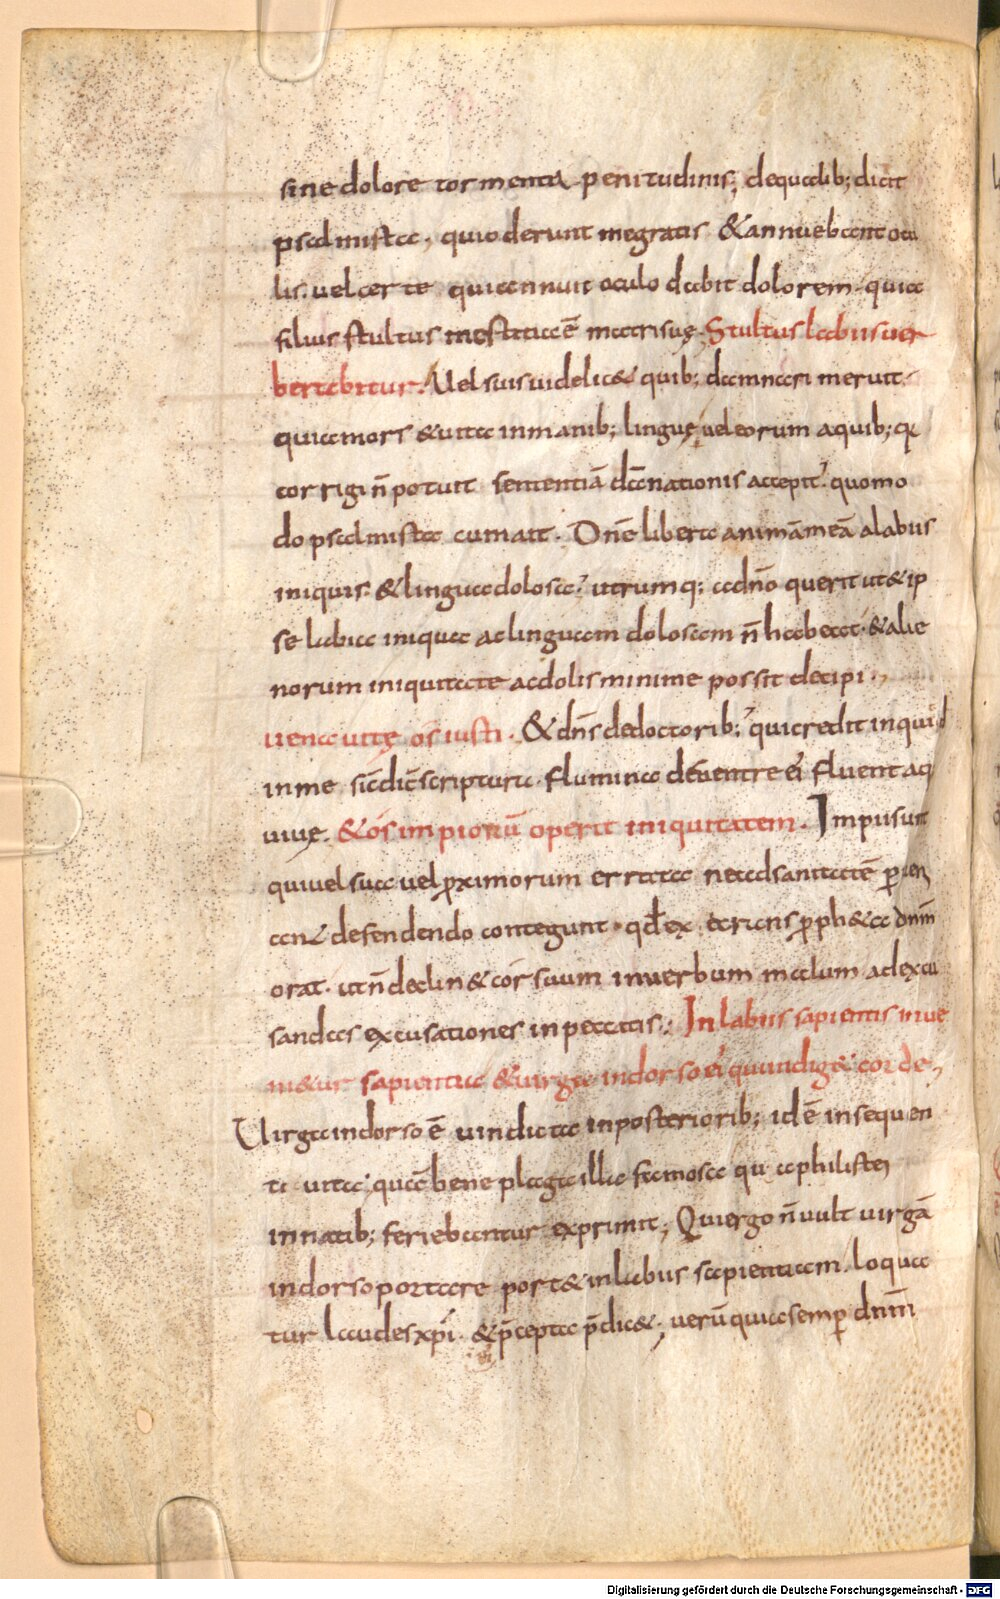 sine dolore tormenta penitudinis; dequalib; dicit
psalmista, quioderunt megratis &annuebant ocu
lis. uelcerte quiannuit oculo dabit dolorem. quia
filius stultus mestitia ē matrisuę. Stultus labiisuer
berabitur. Uelsuisuidelic& quib; damnari meruit.
quiamors &uita inmanib; linguę. ueleorum aquib; q
corrigi n̄ potuit sententiā dānationis accepit. quomo
do psalmista cumait. Dn̄e libera animāmeā alabiis
iniquis &lingua dolosa. utrumq; adn̄o querit ut&ip
se labia iniqua aclinguam dolosam n̄ habeat. &alie
norum iniquitate acdolis minime possit decipi.
uena uitę os iusti. &dn̄s dedoctorib; quicredit inquid
inme sic̄dic̄scriptura. flumina deuentre ei fluentaq
uiuę. &os impiorū operit iniquitatem. Impii sua
quiuel sua uel proximorum errata neadsanitatē
defendendo contegunt. qđ ex proph&a dnm̄
orat. utn̄declin& cor suum inuerbum malum adexcu
sandas excusationes inpeccatis. Inlabiis sapientis inue
ni&ur sapientia &uirga indorso ei quiindig& corde,
Uirga indorso ē uindicta inposteriorib; id ē insequen
ti uita. quābene plaga illa famosa qu aphilistei
innatib; feriebantur exprimit; Quiergo n̄ uult uirgā
indorsoportare port& inlabiis sapientiam. loqua
tur laudesxp̄i. &p̄cepta p̄dic&; uerūquiasemp̱ dnm̄
Digitalisierung gefördert durch die Deutsche Forschungsgemeinschaft - DFG